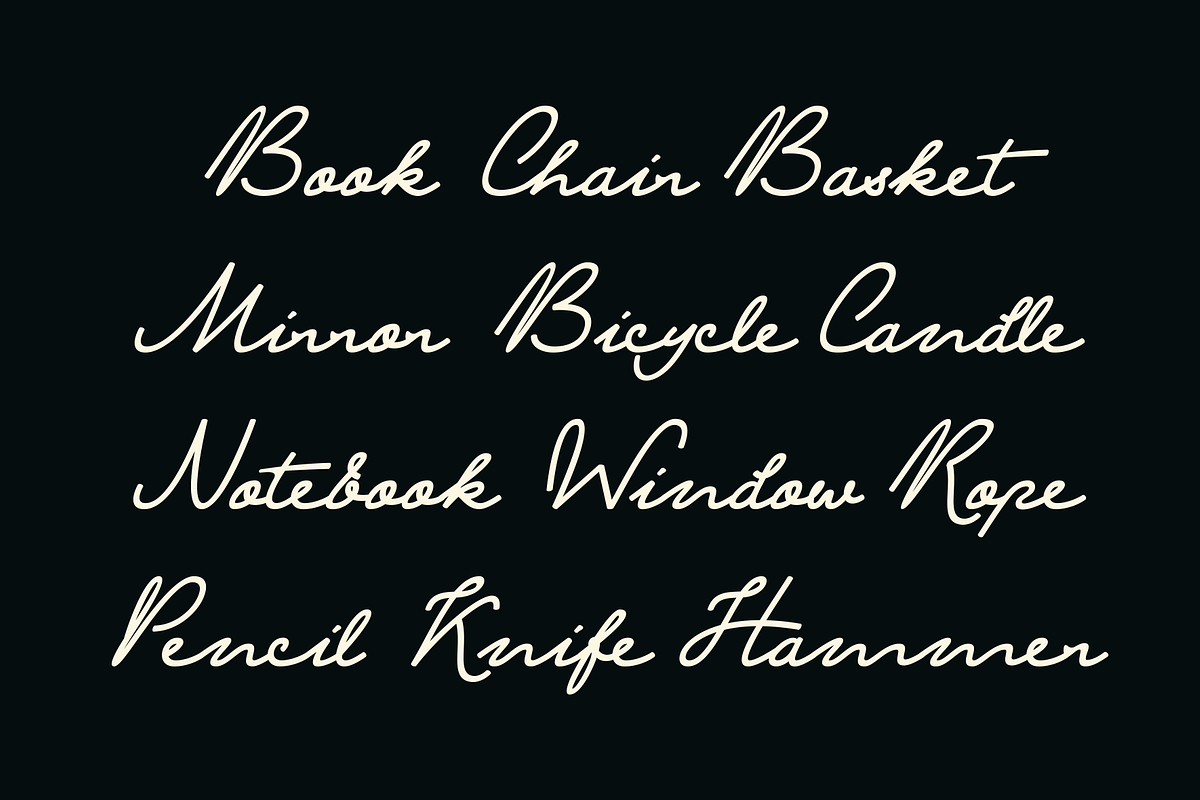 Book Chair Basket
Mirror Bicycle Candle
Notebook Window Rope
Pencil Knife Hammer